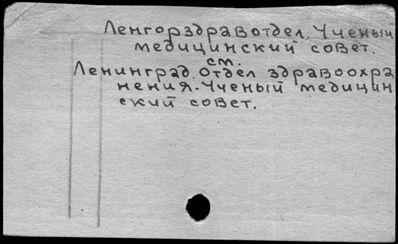 Ленгорздравотдел. Ученый
медицинский совет.
см.
Ленинград. Отдел здравоохра
нения. Ученый медицин
ский совет.